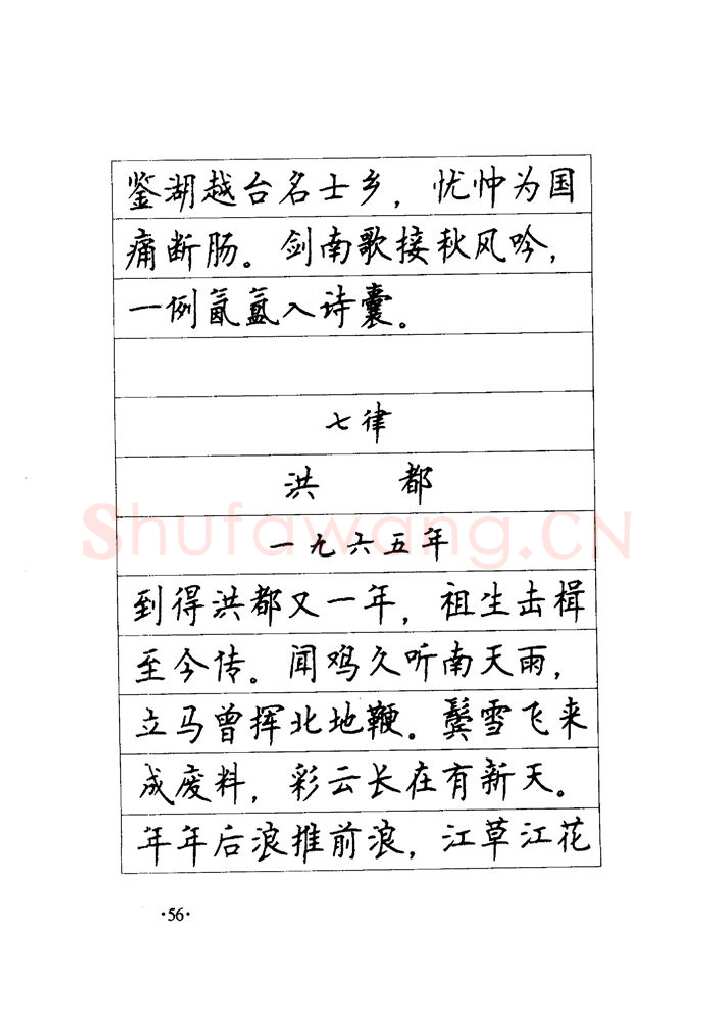 鉴湖越台名士乡，忧忡为国
痛断肠。剑南歌接秋风吟，
一例氤氲入诗囊。
七律
洪都
一九六五年
到得洪都又一年，祖生击楫
至今传。闻鸡久听南天雨，
立马曾挥北地鞭。鬓雪飞来
成废料，彩云长在有新天。
年年后浪推前浪，江草江花
·56·
Shufawang.CN